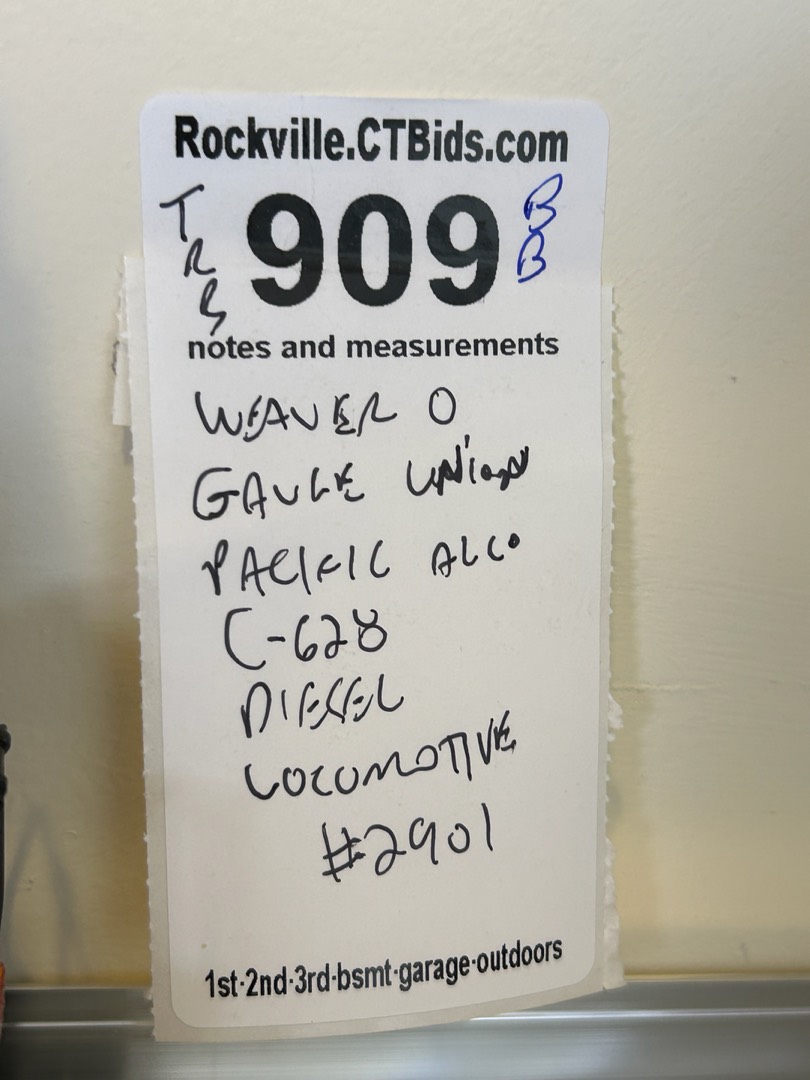 Rockville.CTBids.com
TRB
909
BB
notes and measurements
WEAVER O
GAUGE UNION
PACIFIC ALCO
C-628
DIESEL
LOCOMOTIVE
#2901
1st·2nd·3rd·bsmt·garage·outdoors